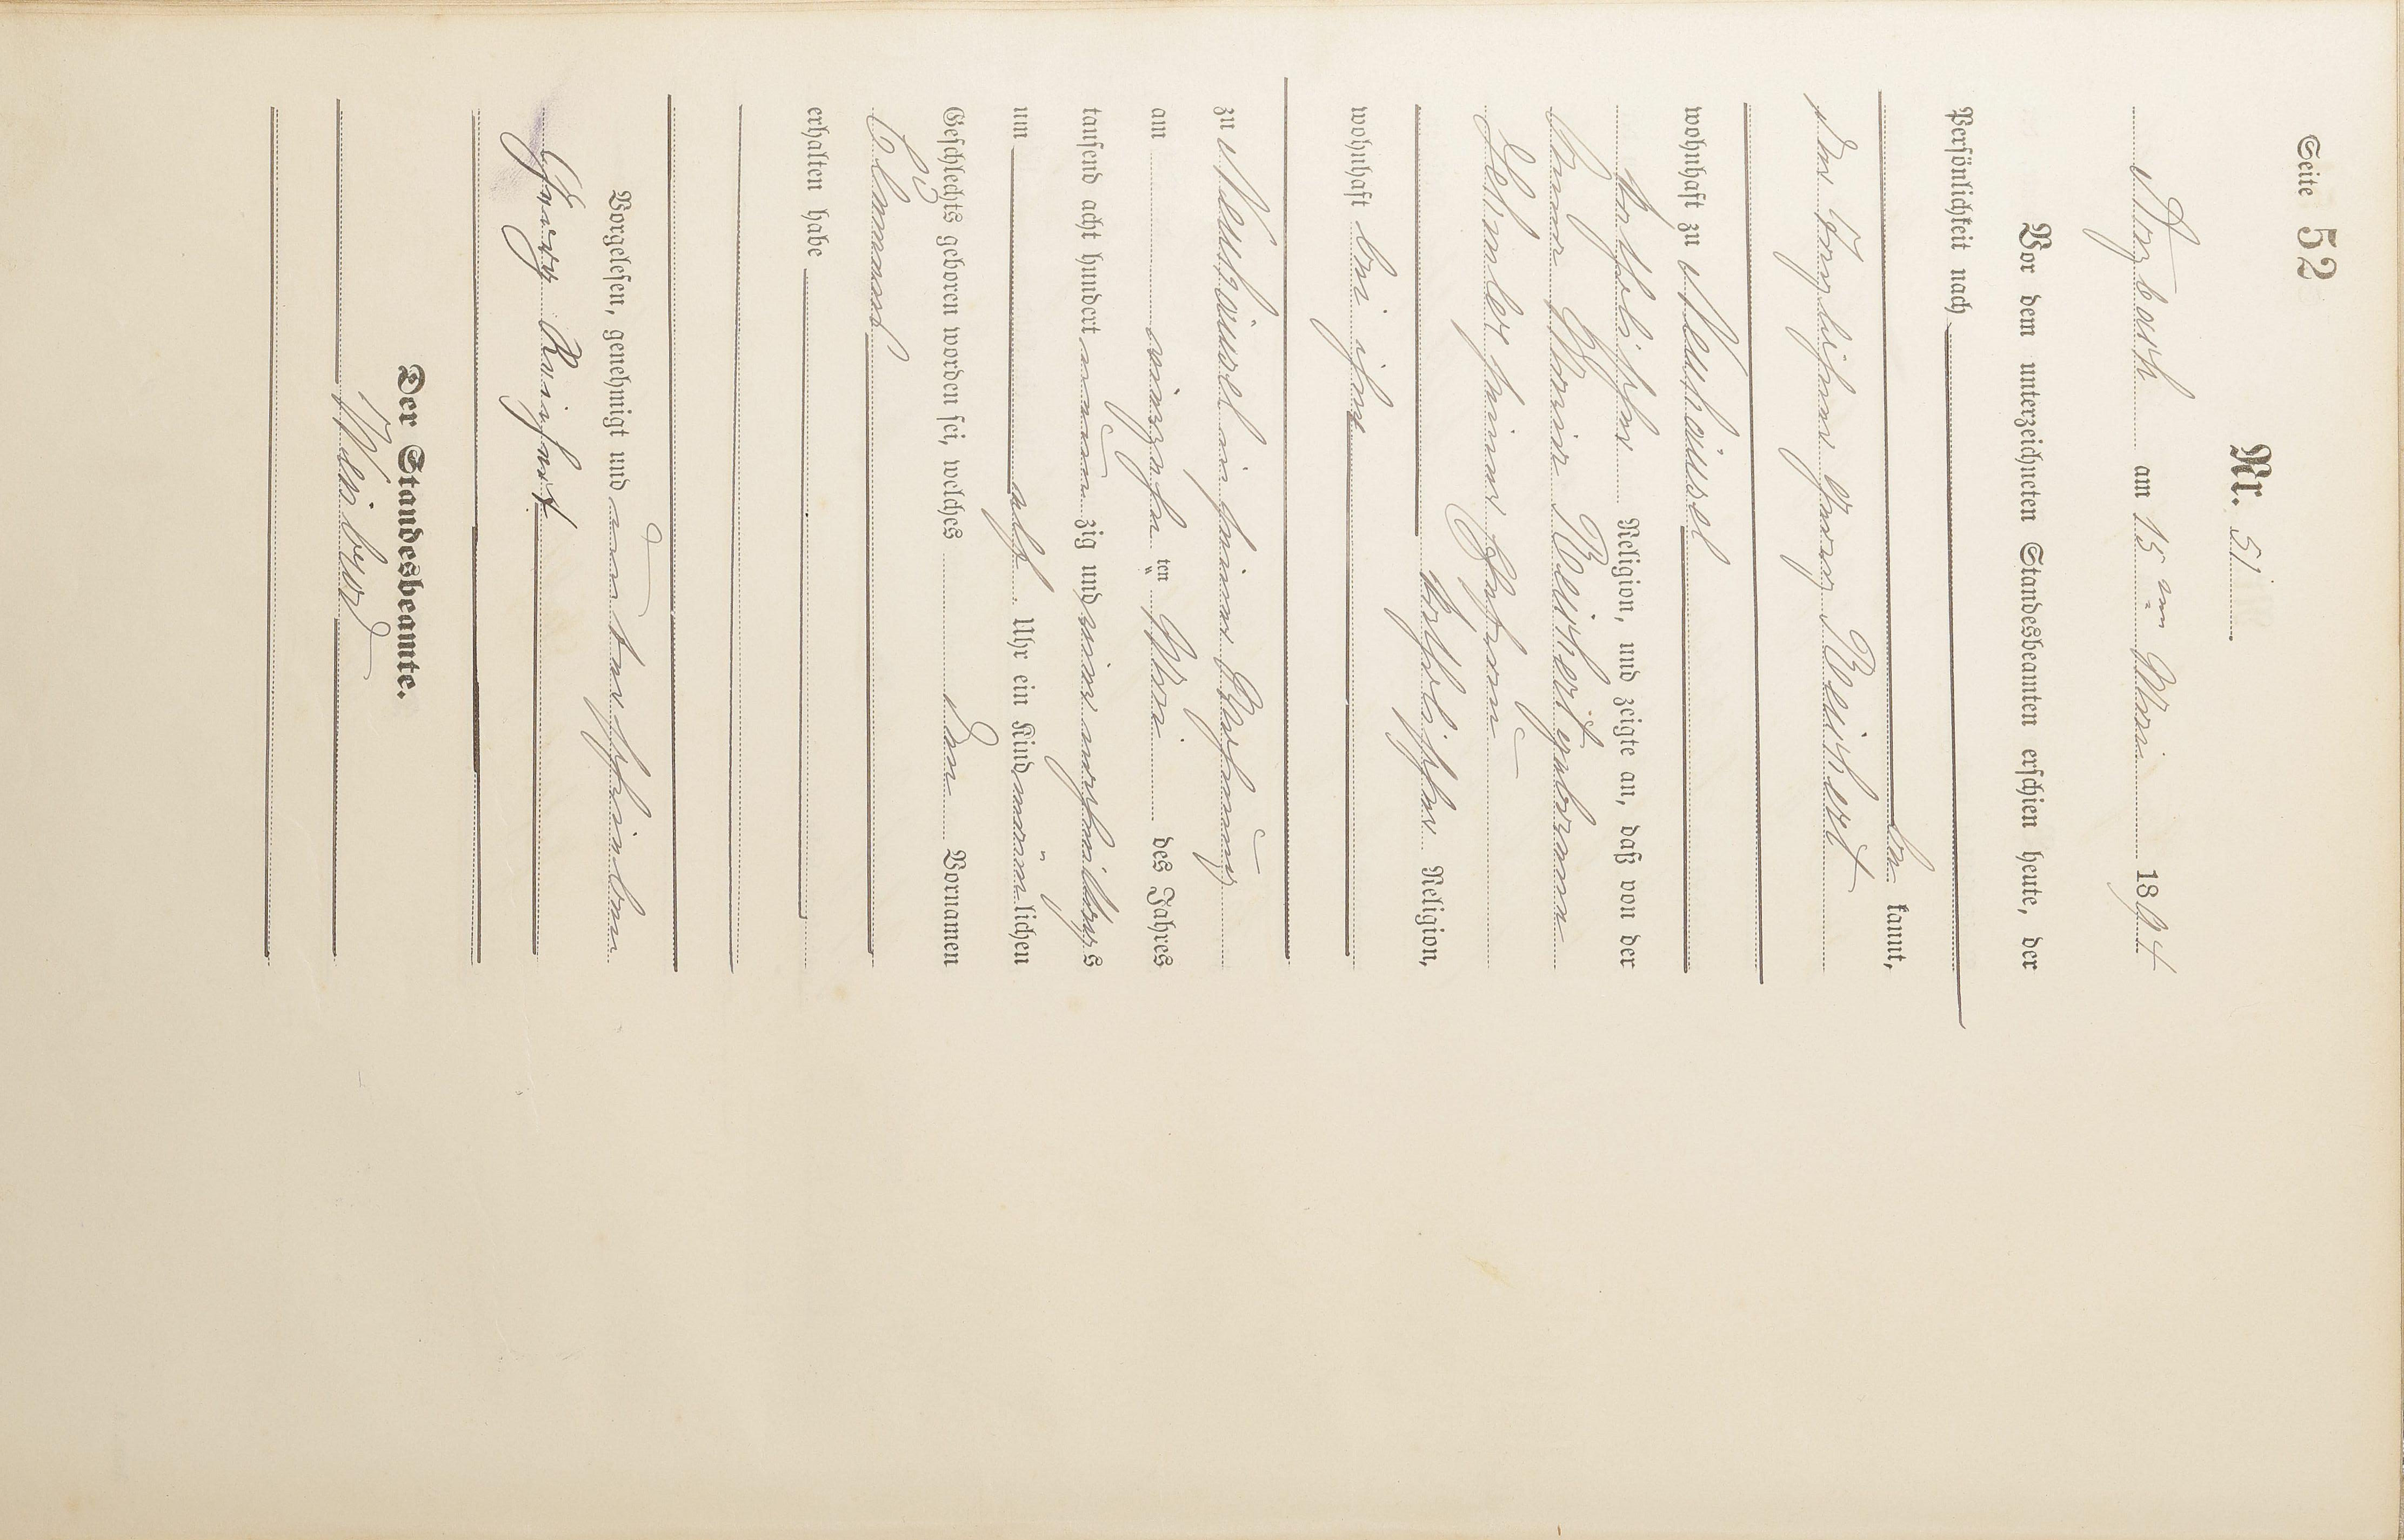 Seite 52
Nr. 51
Arzbach am 15ten Mai 1894
Vor dem unterzeichneten Standesbeamten erschien heute, der
Persönlichkeit nach
be kannt,
der Georg Reichert
wohnhaft zu Neuhäusel
katholischer Religion, und zeigte an, daß von der
Anna Maria Reichert geborenen
seiner Ehefrau
katholischer Religion,
wohnhaft bei ihm
zu Neuhäusel in seiner Wohnung
am vierzehn ten Mai des Jahres
tausend acht hundert neun zig und vier nachmittags
um elf Uhr ein Kind männ lichen
Geschlechts geboren worden sei, welches den Vornamen
erhalten habe
Vorgelesen, genehmigt und unterschrieben
Georg Reichert
Der Standesbeamte.